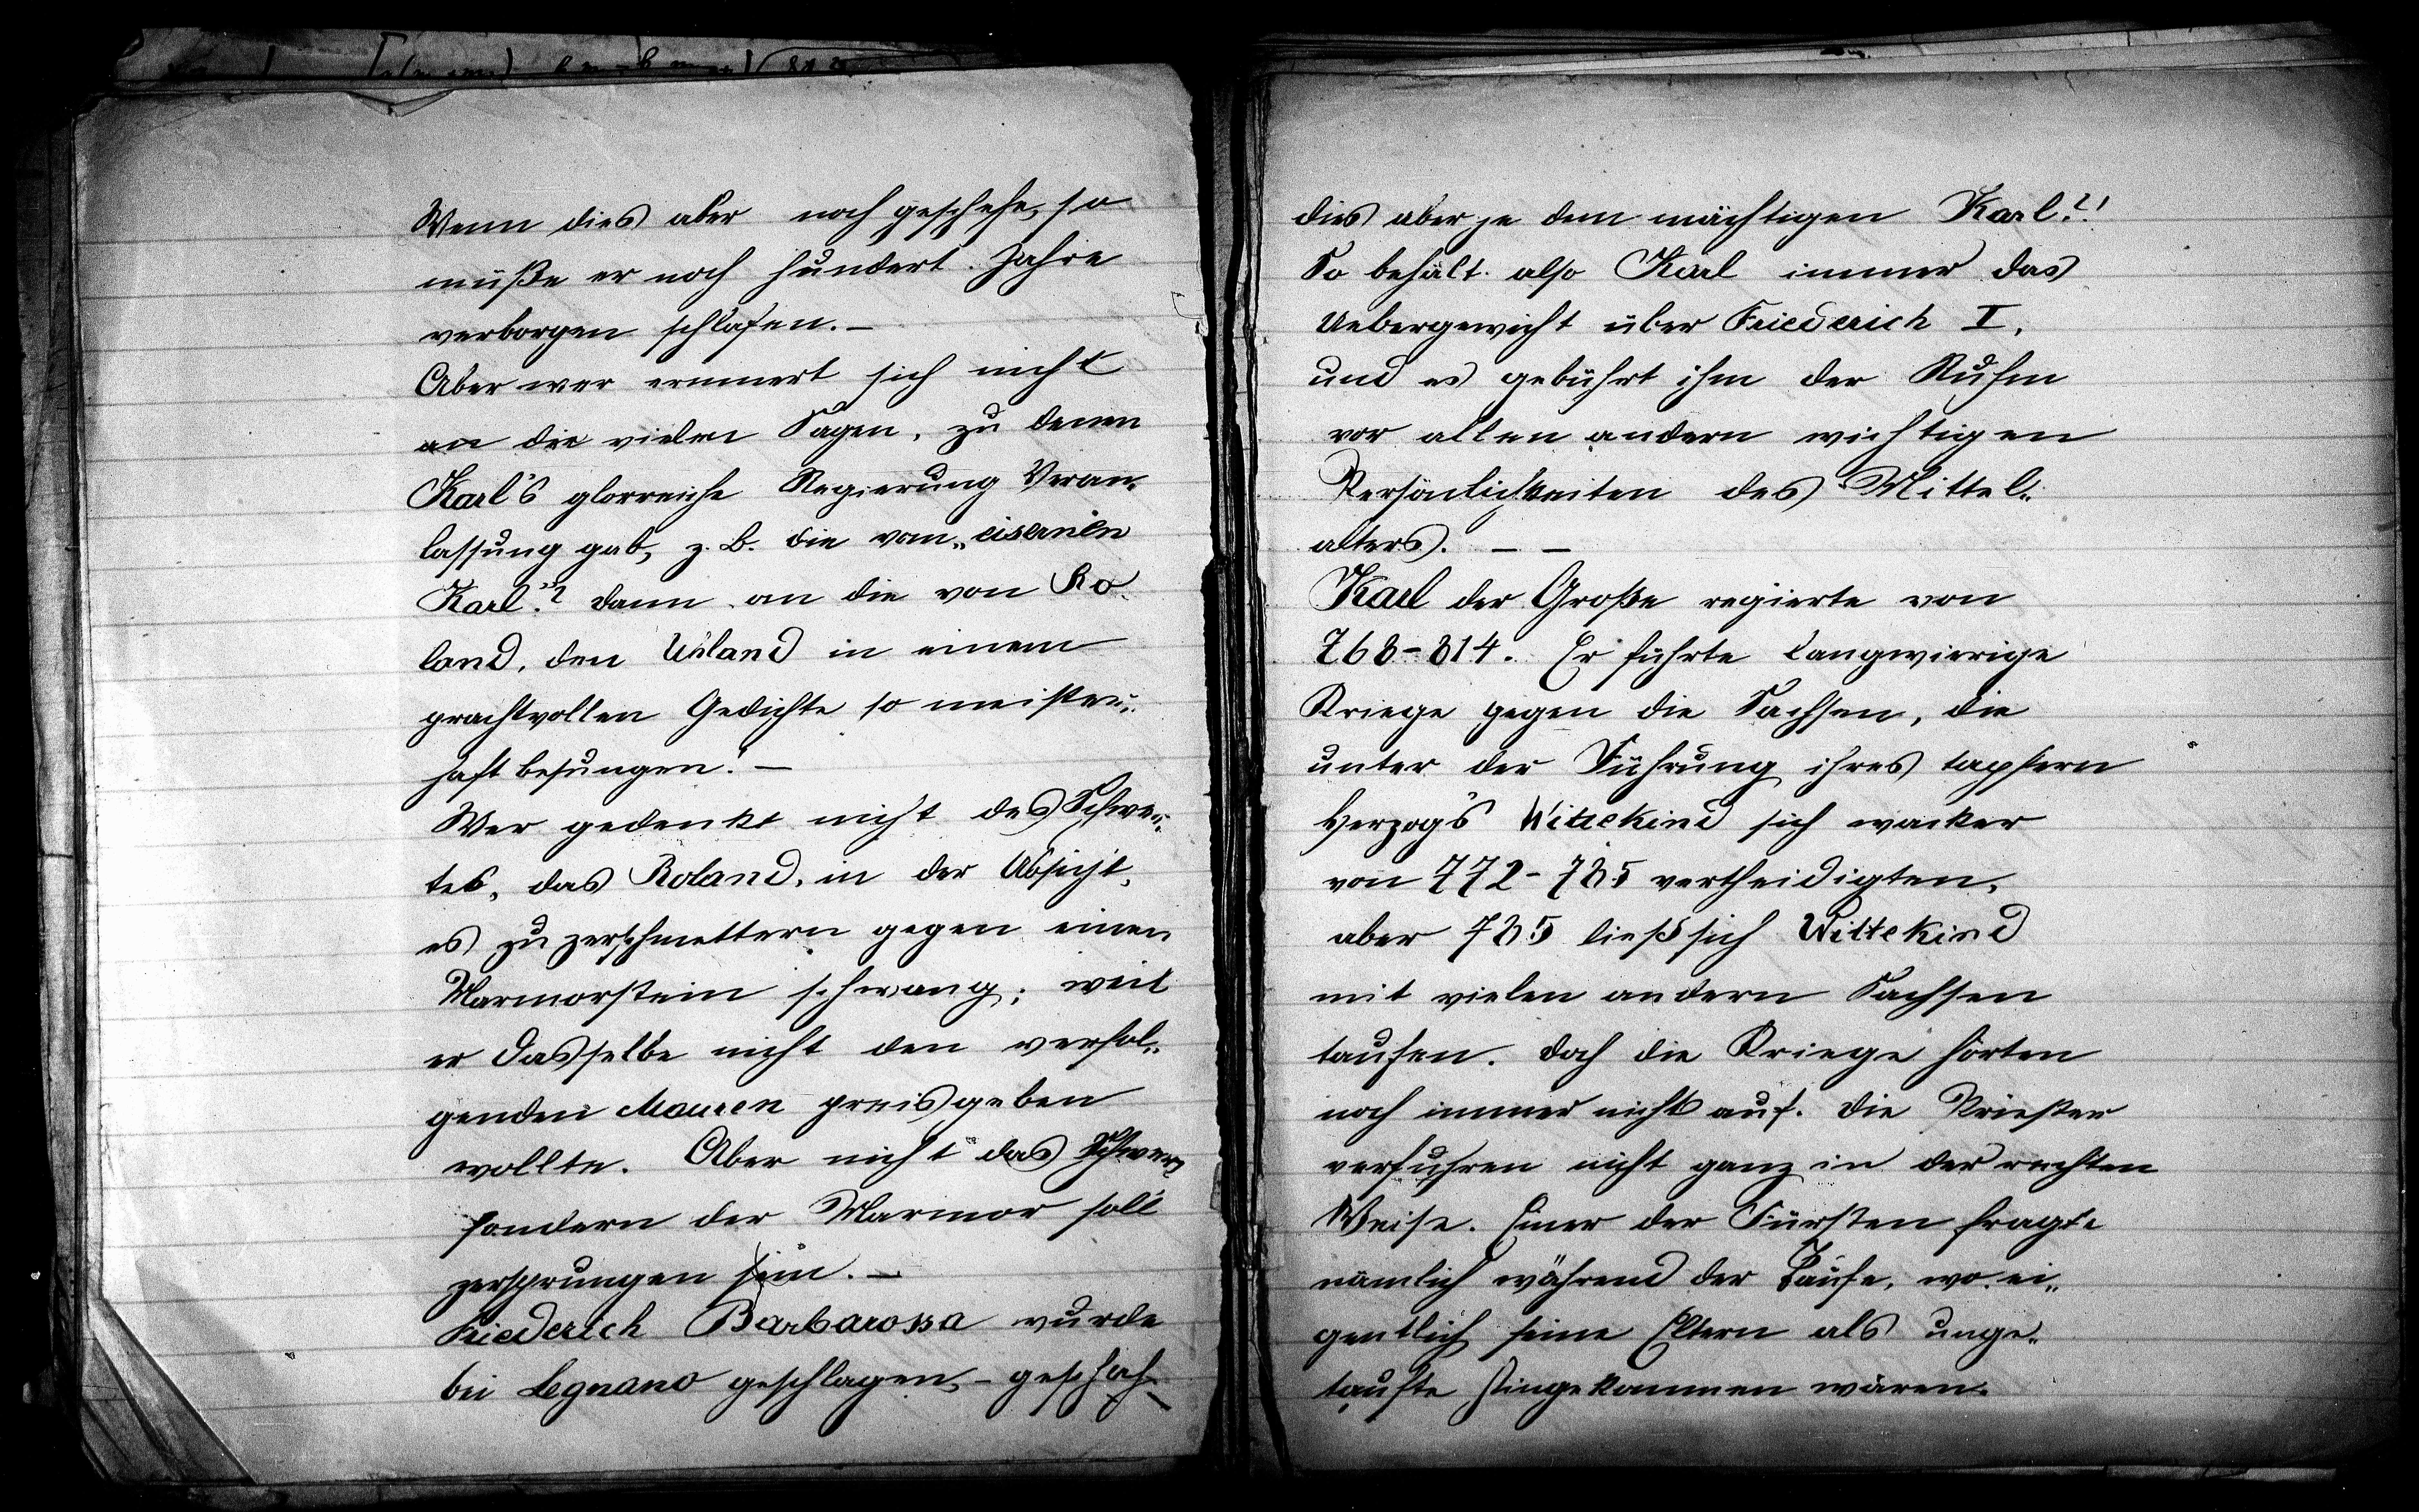 Wenn dies aber noch geschehe, so
müße er noch hundert Jahre
verborgen schlafen. –
Aber wer erinnert sich nicht
an die vielen Sagen, zu denen
Karl's glorreiche Regierung Veran„
lassung gab, z. B. die vom „eisernen
Karl“? dann an die von Ro„
land, den Uhland in einem
prachtvollen Gedichte so meister„
haft besungen! –
Wer gedenkt nicht des Schwer„
tes, das Roland, in der Absicht,
es zu zerschmettern gegen einen
Marmorstein schwang; weil
er dasselbe nicht den verfol„
genden Mauren preisgeben
wollte. Aber nicht das
sondern der Marmor soll
zersprungen sein. –
Friederich Barbarossa wurde
bei Legnano geschlagen, – geschah
dies aber je dem mächtigen Karl?!
So behält also Karl immer das
Uebergewicht über Friederich I,
und es gebührt ihm der Ruhm
vor allen andern wichtigen
Persönlichkeiten des Mittel„
alters. – –
Karl der Große regierte von
768–814. Er führte langwierige
Kriege gegen die Sachsen, die
unter der Führung ihres tapfern
Herzogs Wittekind sich wacker
von 772–785 vertheidigten,
aber 785 ließ sich Wittekind
mit vielen andern Sachsen
taufen. Doch die Kriege hörten
noch immer nicht auf. Die Priester
verfuhren nicht ganz in der rechten
Weise. Einer der Fürsten fragte
nämlich während der Taufe, wo ei„
gentlich seine Eltern als unge„
taufte hingekommen wären.